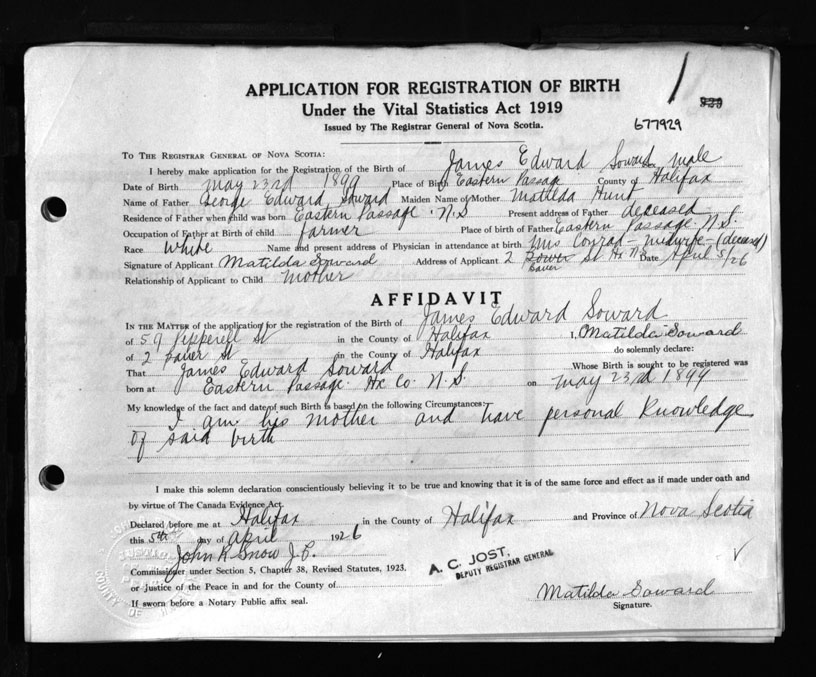 APPLICATION FOR REGISTRATION OF BIRTH
Under the Vital Statistics Act 1919
Issued by The Registrar General of Nova Scotia.
677929
TO THE REGISTRAR GENERAL OF NOVA SCOTIA:
I hereby make application for the Registration of the Birth of James Edward Soward male
Date of Birth May 23rd 1899 Place of Birth Eastern Passage County of Halifax
Name of Father George Edward Soward Maiden Name of Mother Matilda Hunt
Residence of Father when child was born Eastern Passage N.S Present address of Father deceased
Occupation of Father at Birth of child farmer Place of birth of Father Eastern Passage N.S.
Race White Name and present address of Physician in attendance at birth Mrs Conrad - midwife - (deceased)
Signature of Applicant Matilda Soward Address of Applicant 2 St Hx N.S. Date April 5/26
Relationship of Applicant to Child mother
AFFIDAVIT
IN THE MATTER of the application for the registration of the Birth of James Edward Soward
of 59 Pepperell St in the County of Halifax I, Matilda Soward
of 2 St in the County of Halifax do solemnly declare:
That James Edward Soward Whose Birth is sought to be registered was
born at Eastern Passage Hx Co. N.S. on May 23rd 1899
My knowledge of the fact and date of such Birth is based on the following Circumstances:
I am his mother and have personal knowledge
of said birth
I make this solemn declaration conscientiously believing it to be true and knowing that it is of the same force and effect as if made under oath and
by virtue of The Canada Evidence Act.
Declared before me at Halifax in the County of Halifax and Province of Nova Scotia
this 5th day of April 1926
John R Snow J.P.
Commissioner under Section 5, Chapter 38, Revised Statutes, 1923.
A. C. JOST,
DEPUTY REGISTRAR GENERAL
or Justice of the Peace in and for the County of
If sworn before a Notary Public affix seal.
Matilda Soward
Signature.